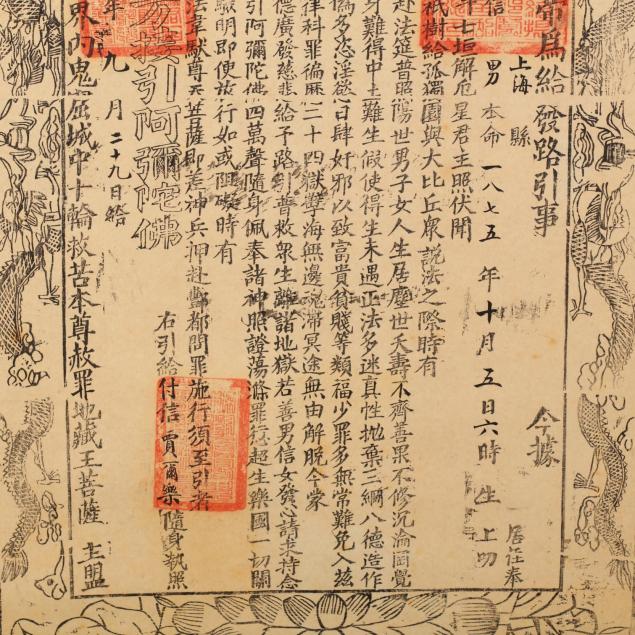 帝為給發路引事　今據
上海縣　居住奉
信男　本命一八七五年十月五日六時生上叩
十七垣解厄星君主照伏聞
祇樹給孤獨園與大比丘眾說法之際時有
赴法筵普照陽世男子女人生居塵世夭壽不齊善果不修沉淪罔覺
身難得中土難生假使得生未遇正法多迷真性拋棄三綱八德造作
偽多恣淫慾日肆奸邪以致富貴貧賤等類福少罪多無常難免入茲
律科罪徧歷二十四獄孽海無邊魂滯冥途無由解脫今蒙
德廣發慈悲給予路引普救眾生離諸地獄若善男信女發心請求持念
引阿彌陀佛四萬聲隨身佩奉諸神照證蕩滌罪愆超生樂國一切關
驗明即便放行如或阻礙時有
法韋馱尊天菩薩即差神兵押赴酆都問罪施行須至引者
右引給付信　賈爾樂　隨身執照
方接引阿彌陀佛
年九月二十九日給
界內鬼窟城中十輪救苦本尊赦罪地藏王菩薩　主盟